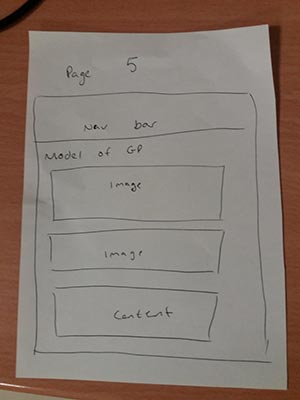 Page 5
Nav bar
Model of GP
Image
Image
Content